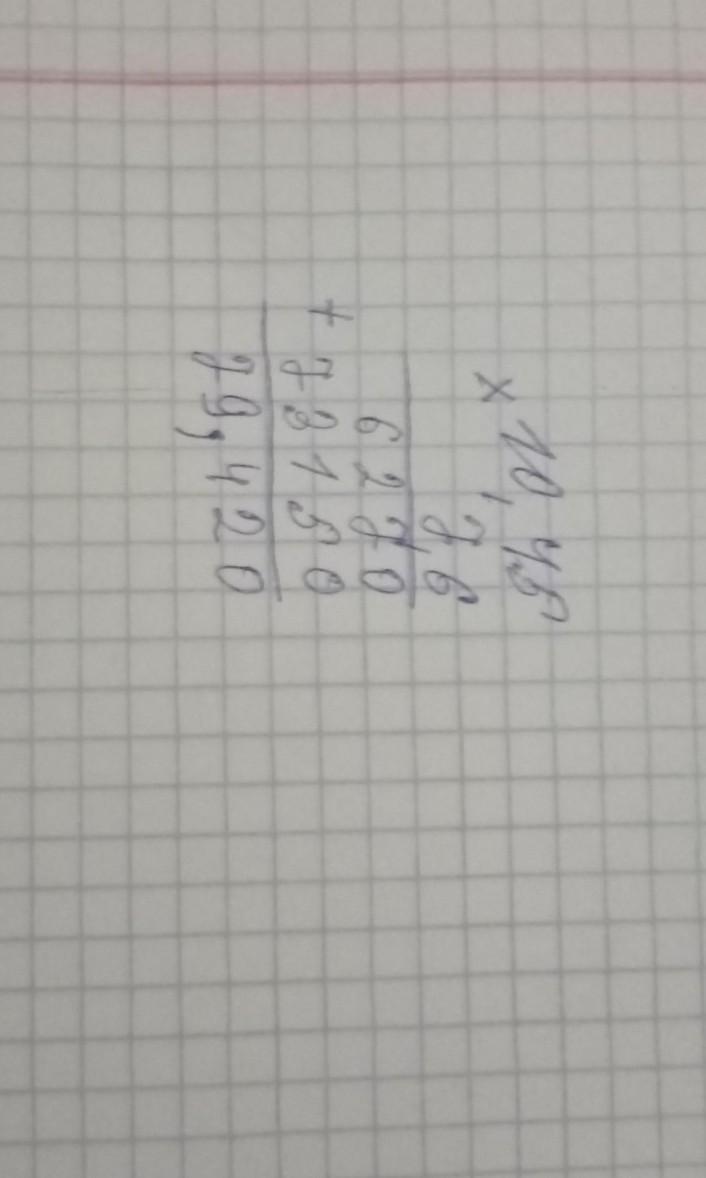 ×
10,45
7,6
6270
+ 73150
79,420